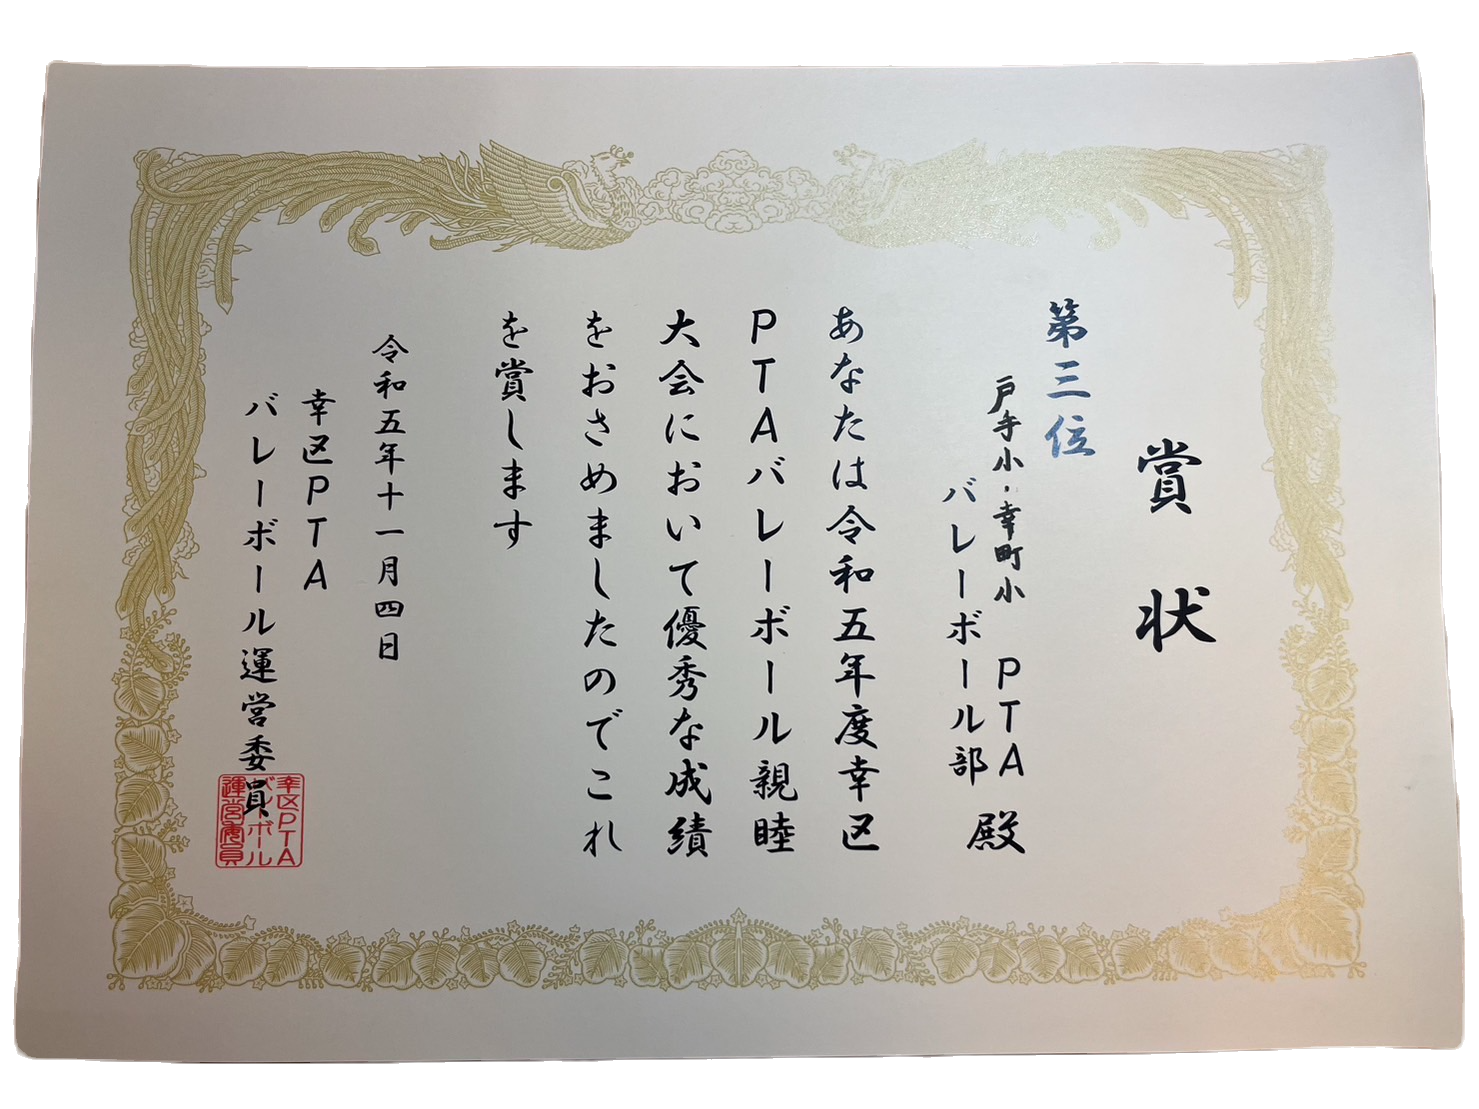 賞状
第三位
戸手小・幸町小 PTA
バレーボール部 殿
あなたは令和五年度幸区
PTAバレーボール親睦
大会において優秀な成績
をおさめましたのでこれ
を賞します
令和五年十一月四日
幸区PTA
バレーボール運営委員
幸区PTA
バレーボール
運営委員